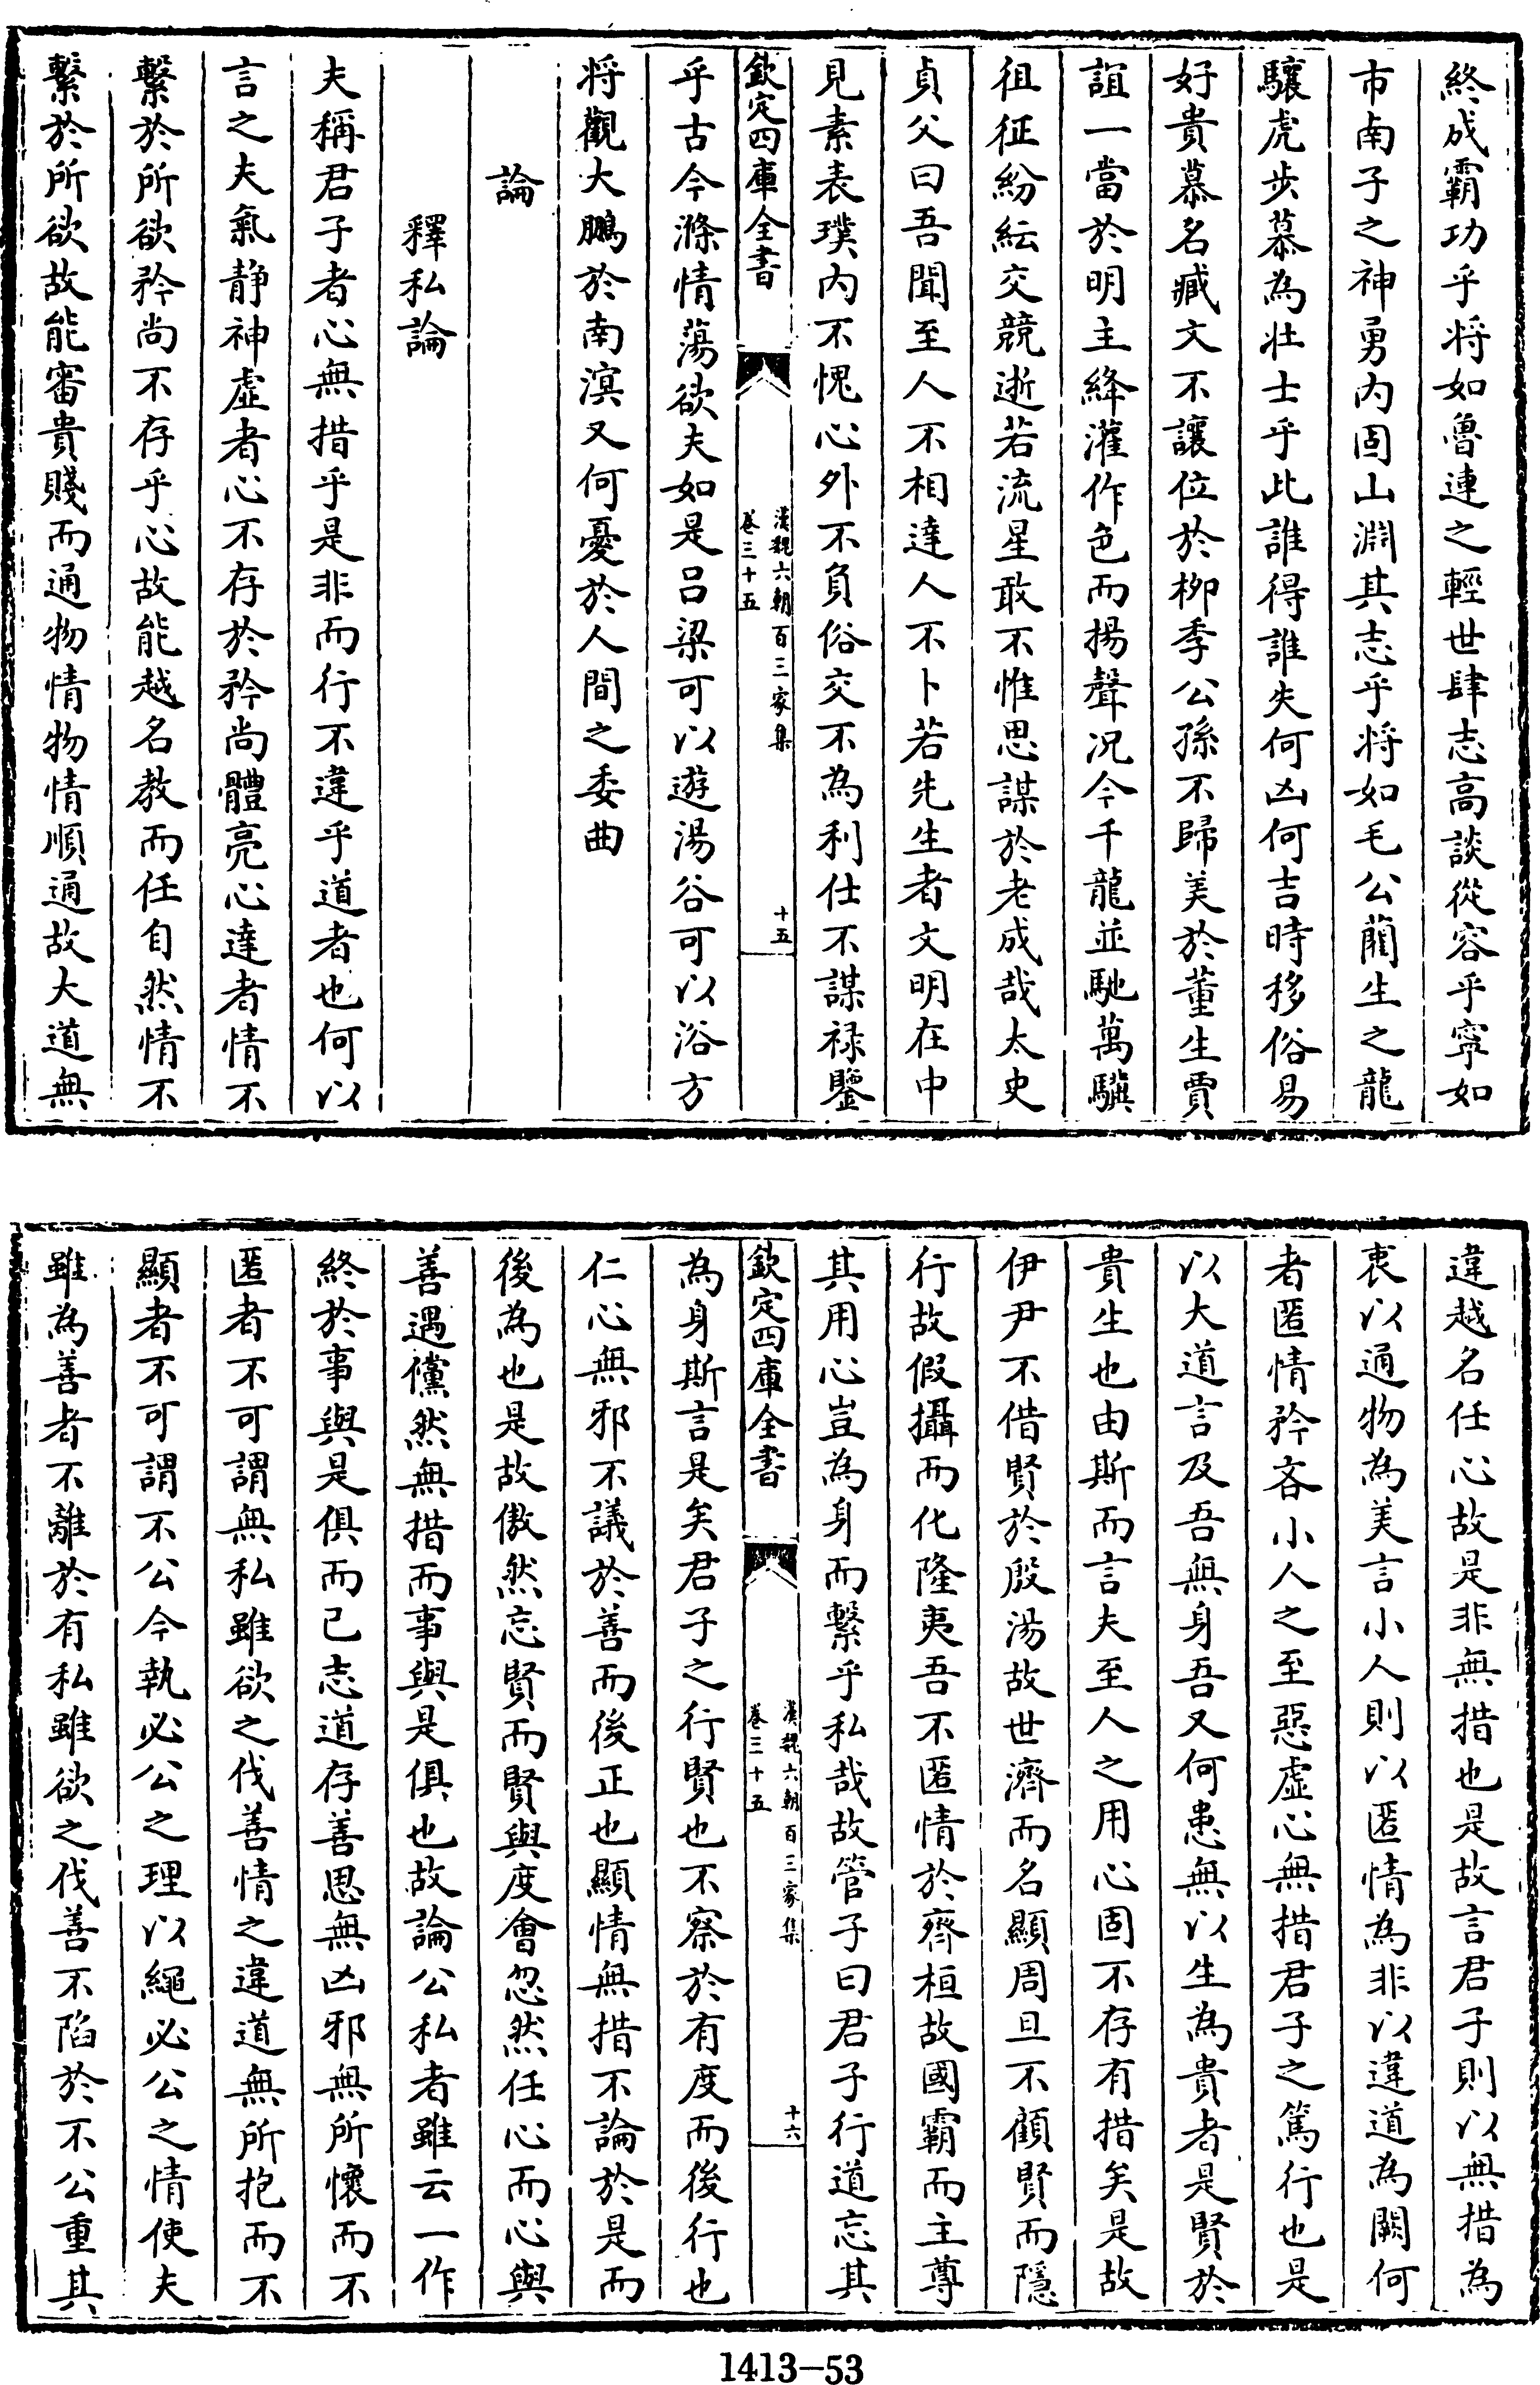 終成霸功乎将如魯連之輕世肆志高談從容乎寧如
市南子之神勇内固山淵其志乎将如毛公藺生之龍
驤虎步慕為壮士乎此誰得誰失何凶何吉時移俗易
好貴慕名臧文不讓位於柳季公孫不歸美於董生賈
誼一當於明主絳灌作色而揚聲况今千龍並馳萬驥
徂征紛紜交競逝若流星敢不惟思謀於老成哉太史
貞父曰吾聞至人不相達人不卜若先生者文明在中
見素表璞内不愧心外不負俗交不為利仕不謀禄鑒
欽定四庫全書
漢魏六朝百三家集
卷三十五
十五
乎古今滌情蕩欲夫如是吕梁可以遊湯谷可以浴方
将觀大鵬於南溟又何憂於人間之委曲
論
釋私論
夫稱君子者心無措乎是非而行不違乎道者也何以
言之夫氣静神虚者心不存於矜尚體亮心達者情不
繫於所欲矜尚不存乎心故能越名教而任自然情不
繫於所欲故能審貴賤而通物情物情順通故大道無
違越名任心故是非無措也是故言君子則以無措為
衷以通物為美言小人則以匿情為非以違道為闕何
者匿情矜吝小人之至惡虚心無措君子之篤行也是
以大道言及吾無身吾又何患無以生為貴者是賢於
貴生也由斯而言夫至人之用心固不存有措矣是故
伊尹不借賢於殷湯故世濟而名顯周旦不顧賢而隱
行故假攝而化隆夷吾不匿情於齊桓故國霸而主尊
其用心豈為身而繫乎私哉故管子曰君子行道忘其
欽定四庫全書
漢魏六朝百三家集
卷三十五
十六
為身斯言是矣君子之行賢也不察於有度而後行也
仁心無邪不議於善而後正也顯情無措不論於是而
後為也是故傲然忘賢而賢與度會忽然任心而心與
善遇儻然無措而事與是俱也故論公私者雖云一作
終於事與是俱而已志道存善思無凶邪無所懷而不
匿者不可謂無私雖欲之伐善情之違道無所抱而不
顯者不可謂不公今執必公之理以繩必公之情使夫
雖為善者不離於有私雖欲之伐善不陷於不公重其
1413-53